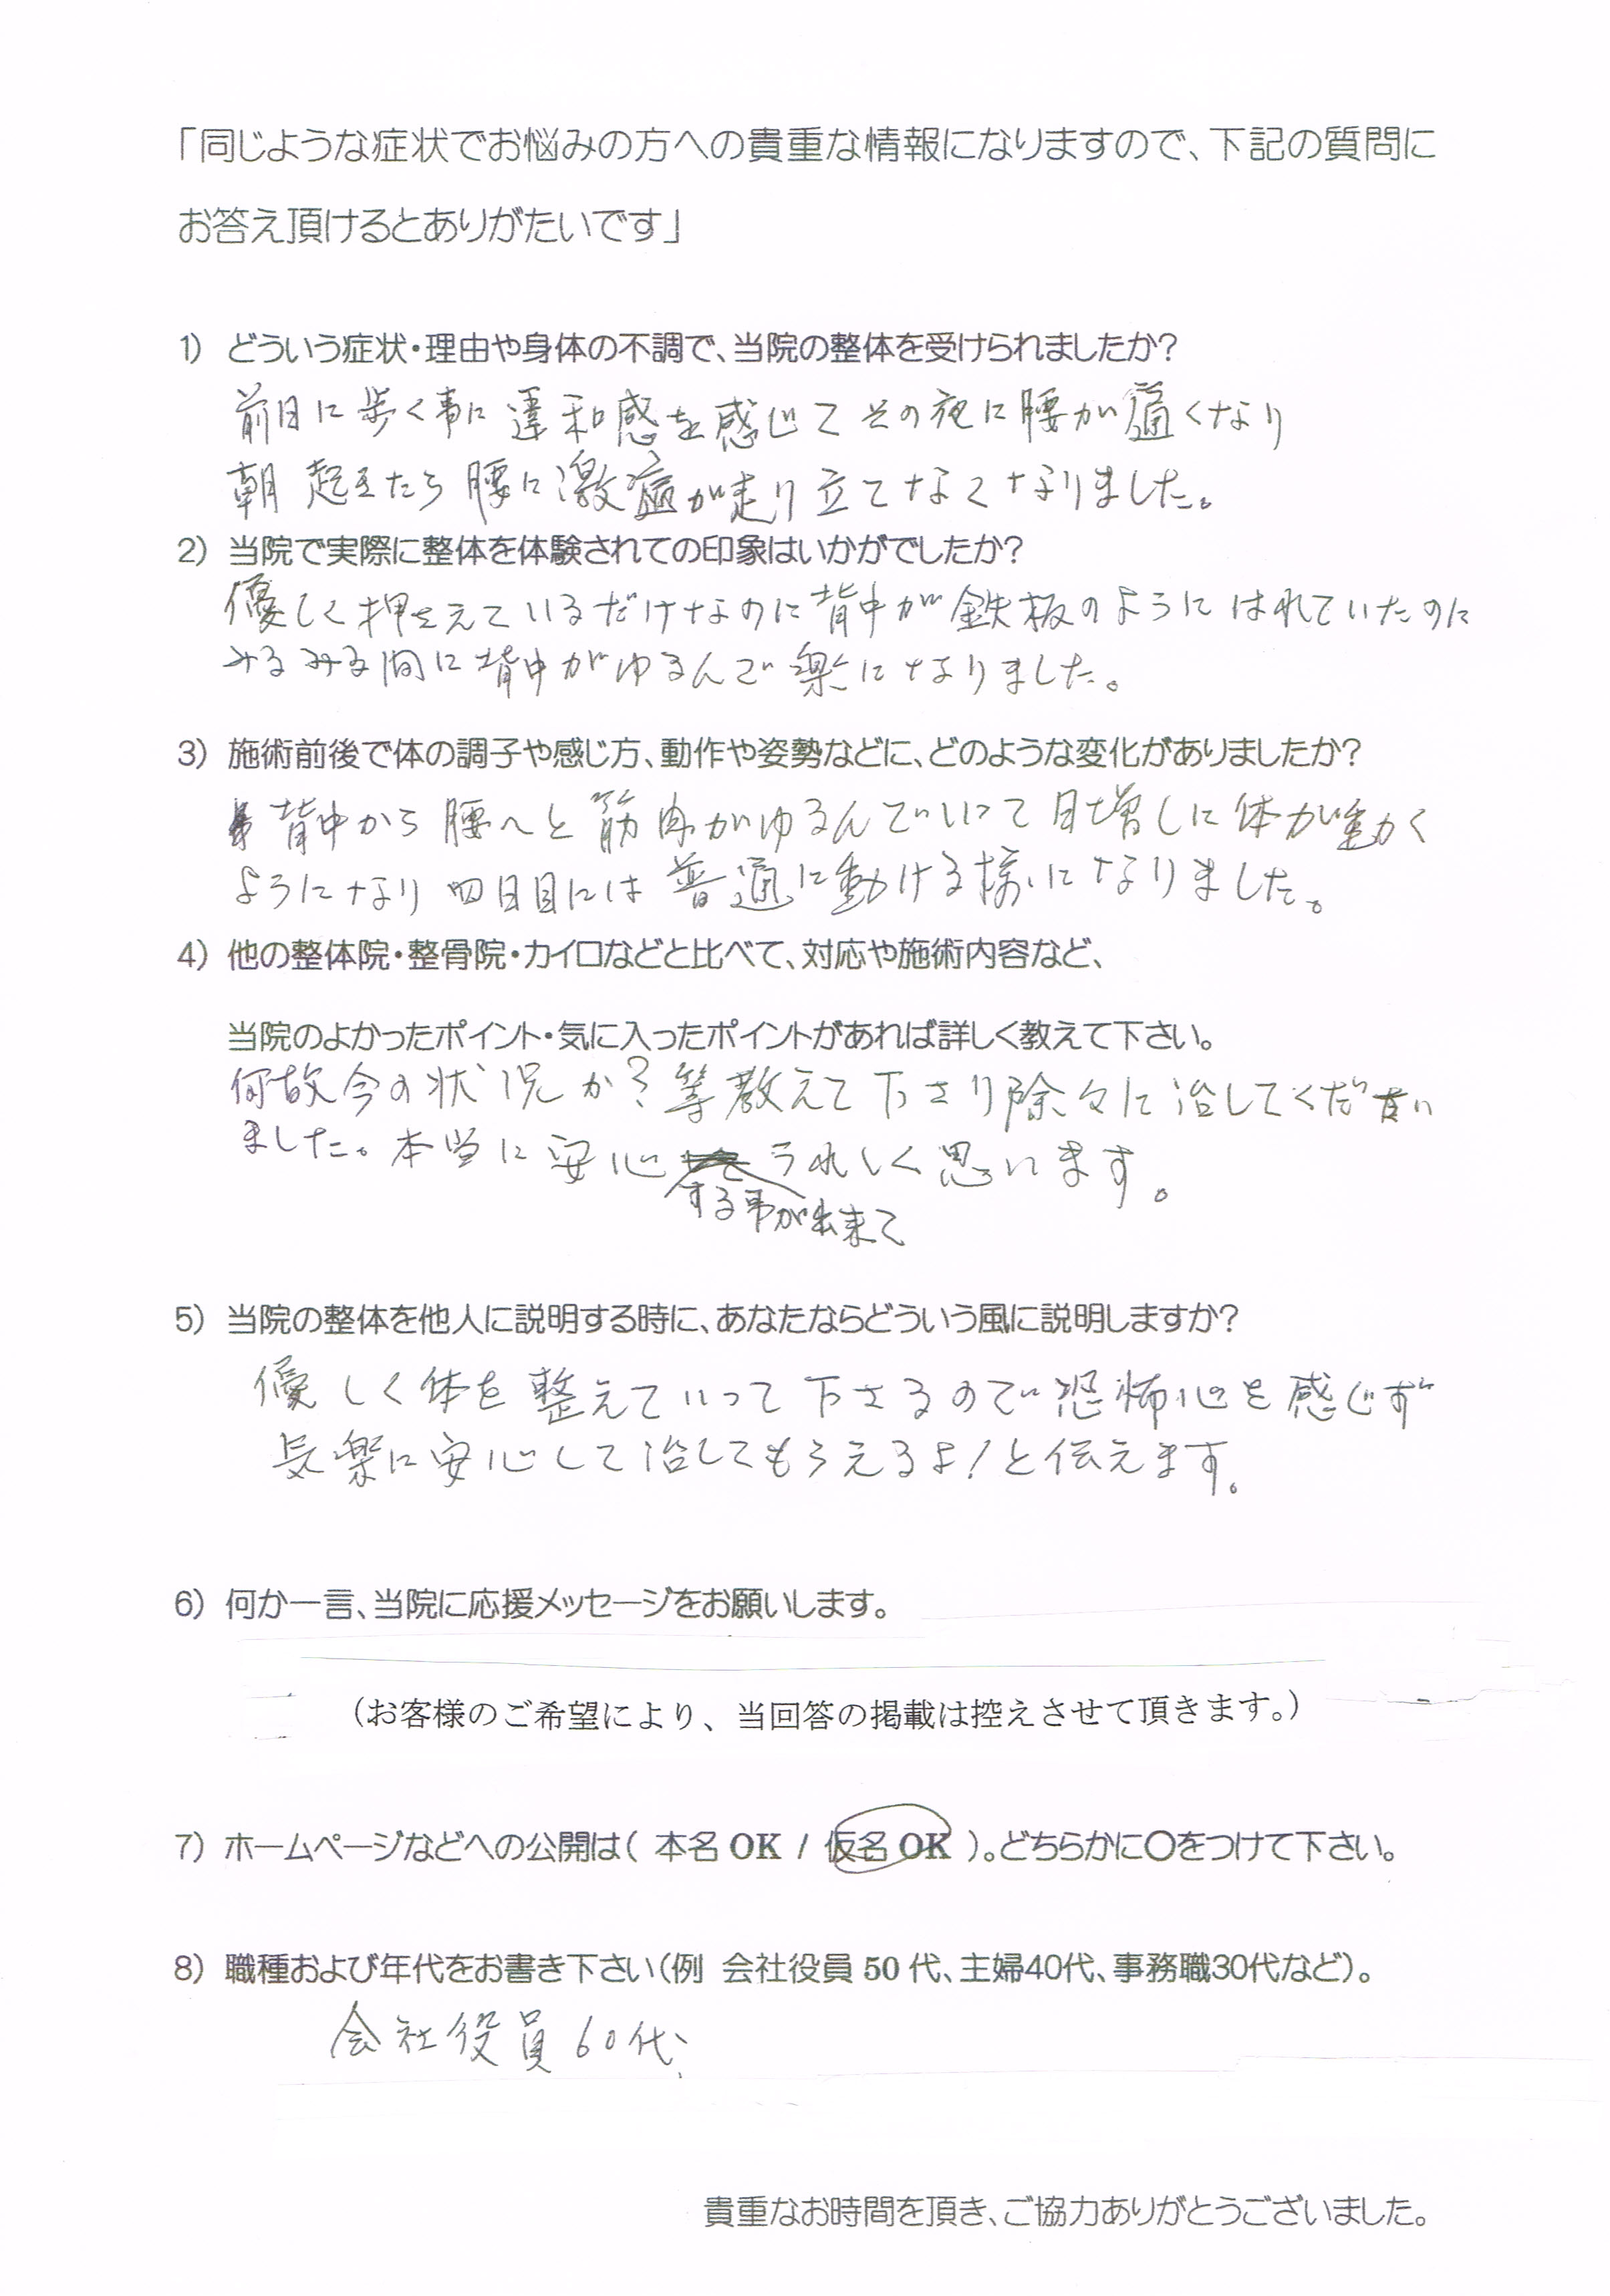 「同じような症状でお悩みの方への貴重な情報になりますので、下記の質問に
お答え頂けるとありがたいです」
1) どういう症状・理由や身体の不調で、当院の整体を受けられましたか?
前日に歩く事に違和感を感じてその夜に腰が痛くなり
朝起きたら腰に激痛が走り立てなくなりました。
2) 当院で実際に整体を体験されての印象はいかがでしたか?
優しく押さえているだけなのに背中が鉄板のようにはれていたのに
みるみる間に背中がゆるんで楽になりました。
3) 施術前後で体の調子や感じ方、動作や姿勢などに、どのような変化がありましたか?
背中から腰へと筋肉がゆるんでいって日増しに体が動く
ようになり四日目には普通に動ける様になりました。
4) 他の整体院・整骨院・カイロなどと比べて、対応や施術内容など、
当院のよかったポイント・気に入ったポイントがあれば詳しく教えて下さい。
何故今の状況か?等教えて下さり除々に治してください
ました。本当に安心うれしく思います。
する事が出来て
5) 当院の整体を他人に説明する時に、あなたならどういう風に説明しますか?
優しく体を整えていって下さるので恐怖心を感じず
気楽に安心して治してもらえるよ!と伝えます。
6) 何か一言、当院に応援メッセージをお願いします。
(お客様のご希望により、当回答の掲載は控えさせて頂きます。)
7) ホームページなどへの公開は( 本名 OK / 仮名 OK )。どちらかに〇をつけて下さい。
8) 職種および年代をお書き下さい(例 会社役員 50 代、主婦40代、事務職30代など)。
会社役員 60代、
貴重なお時間を頂き、ご協力ありがとうございました。